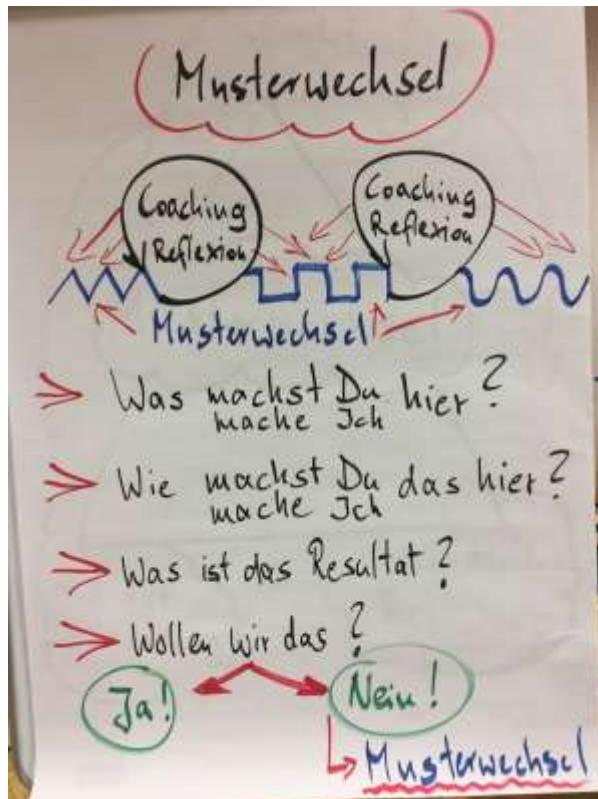 Musterwechsel
Coaching
Reflexion
Coaching
Reflexion
Musterwechsel
Was machst Du hier?
mache Ich
Wie machst Du das hier?
mache Ich
Was ist das Resultat?
Wollen wir das?
Ja!
Nein!
Musterwechsel